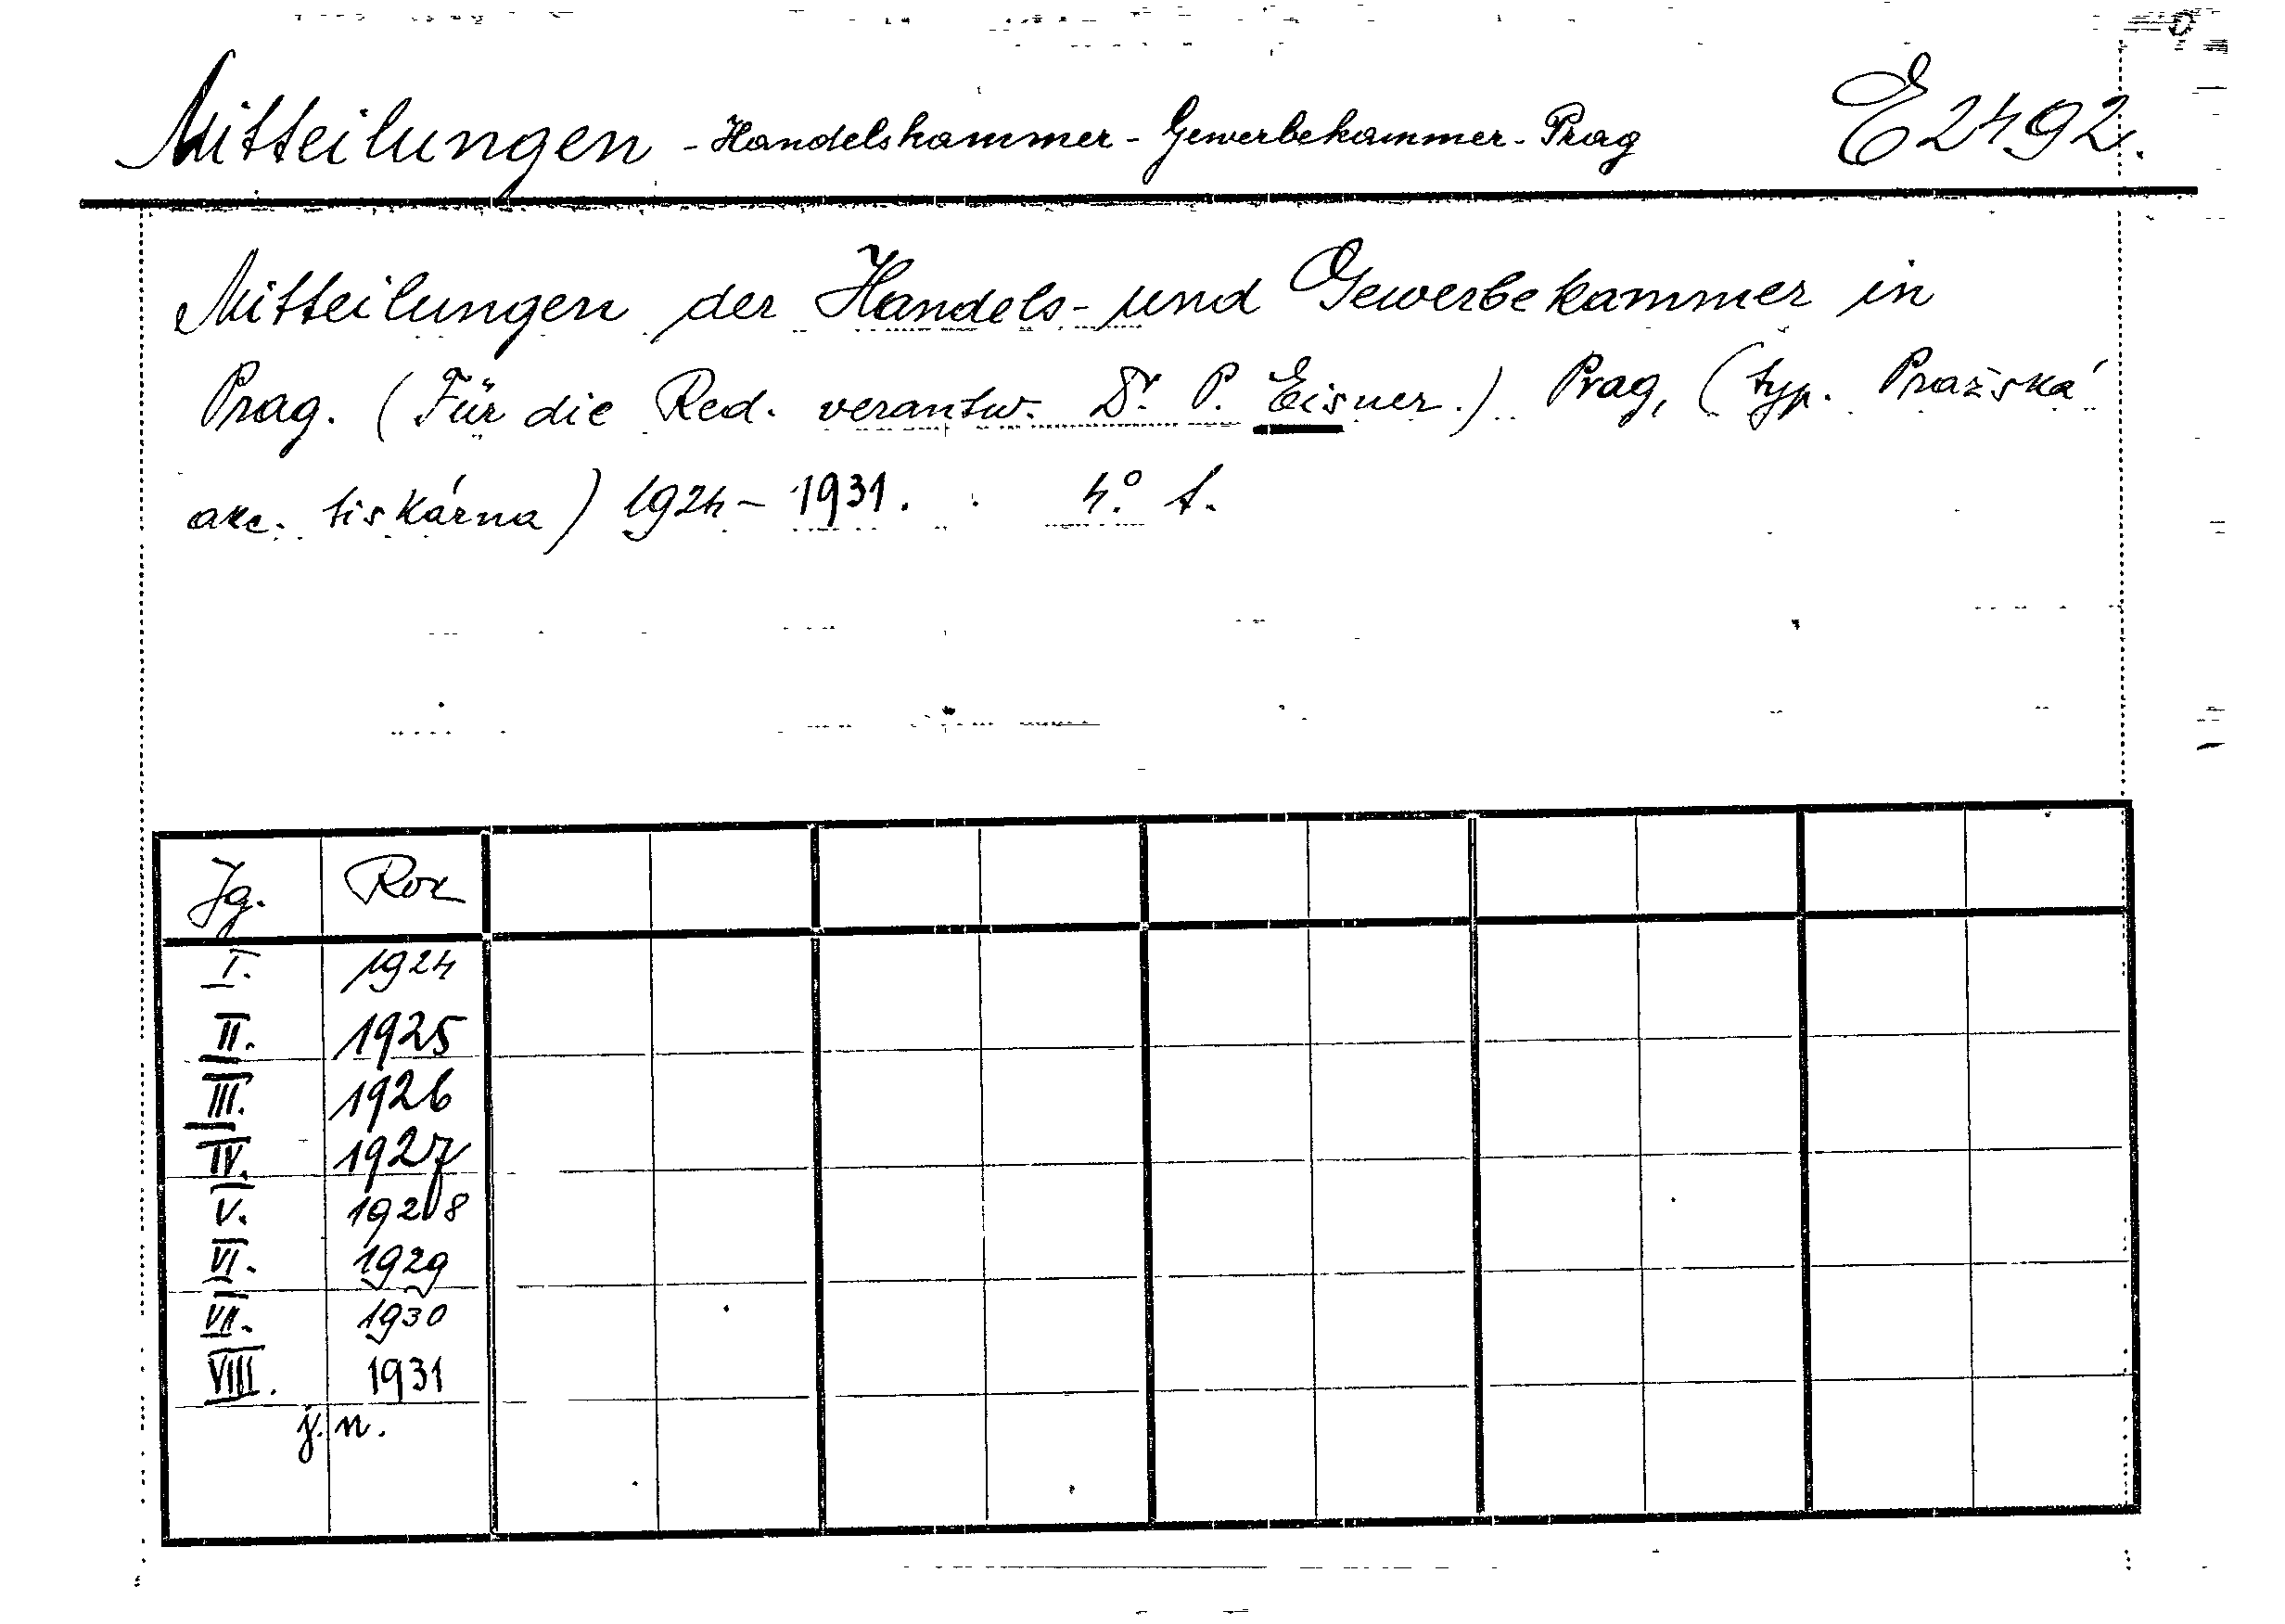 Mitteilungen - Handelskammer - Gewerbekammer - Prag E 2492.
Mitteilungen der Handels- und Gewerbekammer in
Prag. (Für die Red. verantw. Dr. P. Eisner.) Prag, (typ. Pražská
akc. tiskárna) 1924 - 1931. 4.° f.
Jg. Rok
I. 1924
II. 1925
III. 1926
IV. 1927
V. 1928
VI. 1929
VII. 1930
VIII. 1931
j. n.